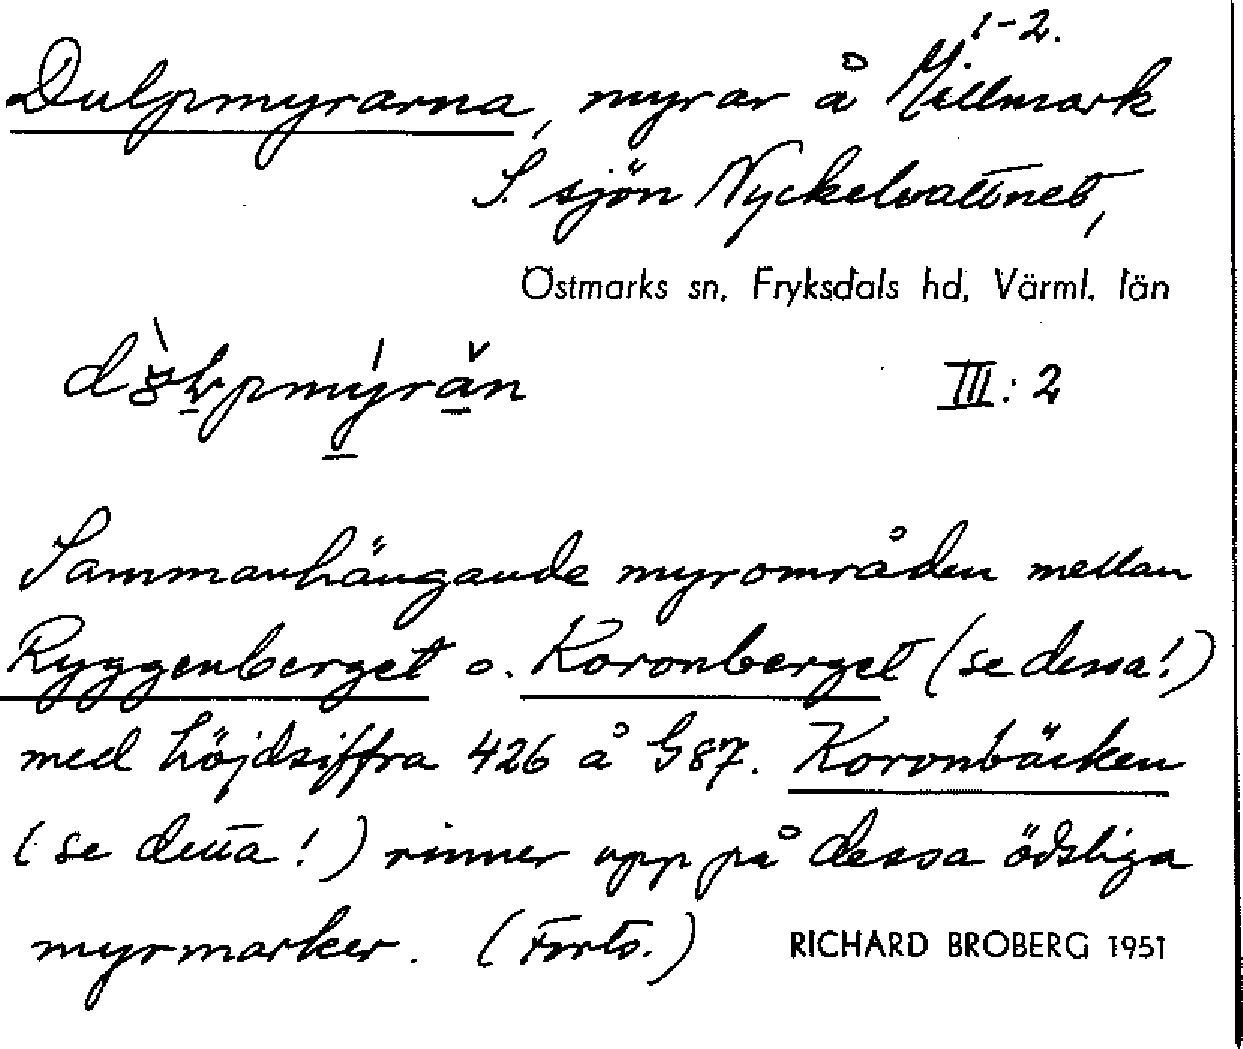 1-2.
Dulpmyrarna, myrar å Millmark
S. sjön Nyckelvattnet,
Östmarks sn. Fryksdals hd. Värml. län
III: 2
Sammanhängande myrområden mellan
Ryggenberget o. Koronberget (se dessa!)
med höjdsiffra 426 å G87. Koronbäcken
(se detta!) rinner upp på dessa ödsliga
myrmarker. (Forts.) RICHARD BROBERG 1951